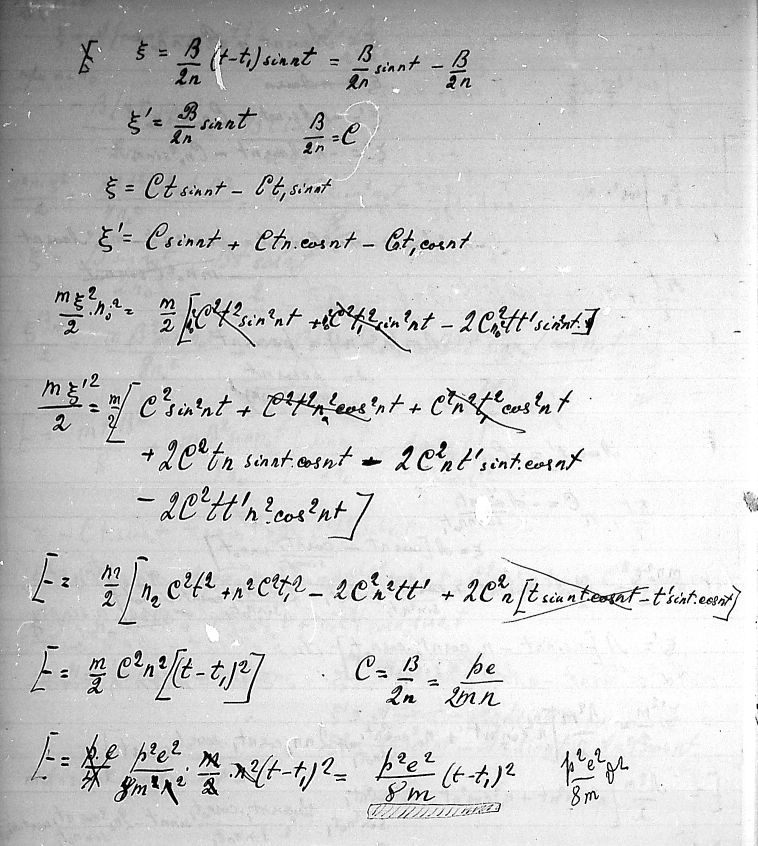 ξ = B/2n (t-t₁) sin nt = B/2n sin nt - B/2n
ξ' = B/2n sin nt B/2n = C
ξ = Ct sin nt - Ct₁ sin nt
ξ' = C sin nt + Ctn.cos nt - Ct, cos nt
mξ²/2 .n₀² = m/2 [C²t² sin²nt + C²t₁² sin²nt - 2Cn²tt' sin²nt.]
mξ'²/2 = m/2 [C² sin²nt + C²t²n² cos²nt + C²n²t₁² cos²nt
+ 2C²tn sin nt.cos nt - 2C²nt' sint.cosnt
- 2C²tt'n².cos²nt]
E = m/2 [n₂ C²t² + n²C²t₁² - 2C²n²tt' + 2C²n [t sin nt.cosnt - t'sint.cosnt]
E = m/2 C²n² [(t-t₁)²] C = B/2n = pe/2mn
E = pe/4 p²e²/8m²n² . m/2 .n²(t-t₁)² = p²e²/8m (t-t₁)² p²e²/8m ϑ²